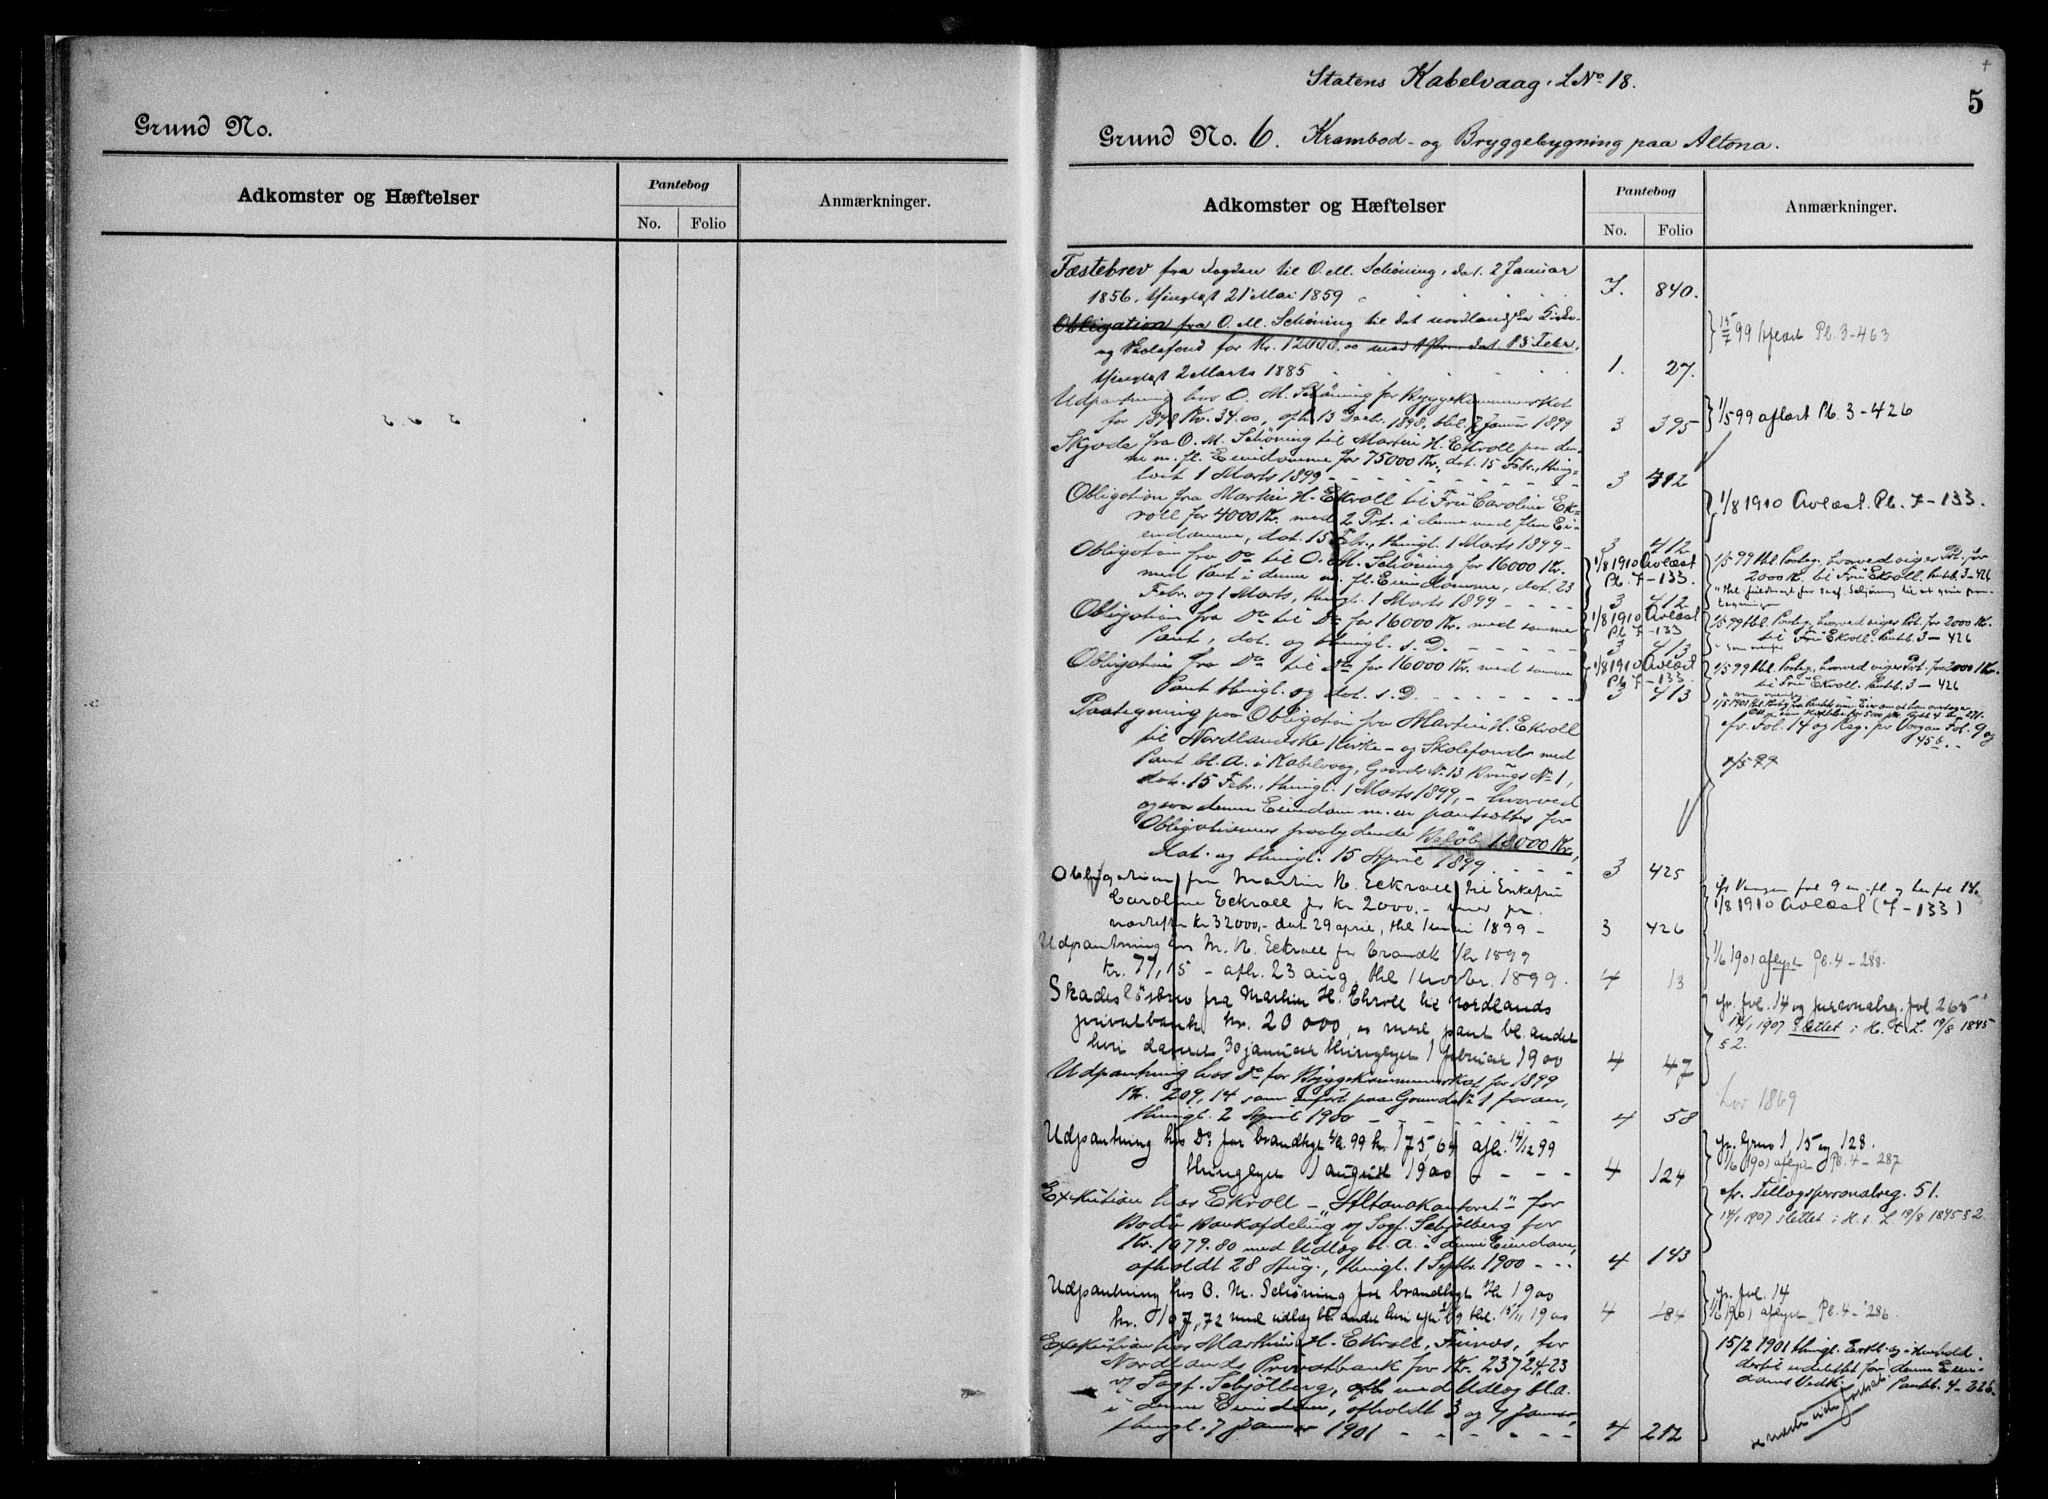 Grund No.
Adkomster og Hæftelser
Pantebog
No.
Folio
Anmærkninger.
Statens Kabelvaag. LNo 18.
5
Grund No. 6. Krambod- og Bryggebygning paa Altona.
Adkomster og Hæftelser
Pantebog
No.
Folio
Anmærkninger.
Fæstebrev fra Fogden til O. M. Schöning, dat. 2 Januar
1856, thinglæst 21 Mai 1859 7. 840.
Obligation fra O. M. Schöning til det nordlandske Kirke-
og Skolefond for Kr. 12000.00 med 1 Pr. dat. 13 Febr.
thinglæst 2 Marts 1885 1. 27.
99 aflæst Pb. 3-463
Udpantning hos O. M. Schöning for Byggekommuneskat
for 1898 Kr. 34.00, afh. 13 Decbr. 1898, thl. 2 Januar 1899 3 395
1/5 99 aflæst Pb. 3-426
Skjøde fra O. M. Schöning til Martin H. Ekroll paa den-
ne m. fl. Eiendomme for 75000 Kr., dat. 15 Febr., thing-
læst 1 Marts 1899 3 412
Obligation fra Martin H. Ekroll til Frü Caroline Ek-
roll for 4000 Kr. med 2 Prt. i denne med flere Ei-
endomme, dat. 15 Febr., thingl. 1 Marts 1899 - 3 412
1/8 1910 Avlæst. Pb. 7-133.
Obligation fra Do til O. M. Schöning for 16000 Kr.
med Pant i denne m. fl. Eiendomme, dat. 23
Febr. og 1 Marts, thingl. 1 Marts 1899 - - - - 3 412
1/8 1910 Avlæst
Pb. 7-133.
1/5 99 thl. Paateg. hvorved viger Prt. for
2000 Kr. til Frü Ekroll. Pantb. 3-426
Obligation fra Do til Do for 16000 Kr. med samme
Pant, dat. og thingl. s. D. - - - - - - 3 413
1/8 1910 Avlæst
Pb 7-133
1/5 99 thl. Paateg. hvorved viger Prt. for 2000 Kr.
til Frü Ekroll. Pantb. 3-426
Obligation fra Do til Do for 16000 Kr. med samme
Pant thingl. og dat. s. D - - - - - - - 3 413
1/8 1910 Avlæst
Pb 7-133.
1/5 99 thl. Paateg. hvorved viger Prt. for 2000 Kr.
til Frü Ekroll. Pantb. 3-426
Paategning paa Obligation fra Martin H. Ekroll
til Nordlandske Kirke- og Skolefond med
Pant bl. A. i Kabelvaag, Gaards No 13 Brugs No 1,
dat. 15 Febr., thingl. 1 Marts 1899, - hvorved
ogsaa denne Eiendom m. en pantsættes for
Obligationens paalydende Beløb 18000 Kr.,
dat. og thingl. 15 April 1899 - - - - 3 425
cfr. Fol. 14 og Reg. for Vaagan Fol. 9 og
45 b. -
1/5 99
Obligation fra Martin H. Eckroll til Enkefru
Caroline Eckroll for kr 2000.- med pr.
næstefter kr 32000,- dat 29 april, thl 1 mai 1899 - 3 426
cfr Vaagan fol 9 m. fl og her fol 14.
1/8 1910 Avlæst (7-133)
Udpantning hos M. H. Eckroll for brandk 1899
kr. 77,15 - afh. 23 aug, thl 1 novbr. 1899. 4 13
1/6 1901 aflyst Pb. 4-288.
Skadesløsbrev fra Martin H. Ekroll til Nordlands
privatbank kr. 20000,00 med pant bl. andet
heri dateret 30 januar thinglyst 1 februar 1900 4 47
cfr. fol. 14 og personalreg. fol 265
14/1 1907 slettet i H. t. L. 19/8 1845
§ 2.
Udpantning hos Do for Byggekommuneskat for 1899
Kr. 209,14 som anført paa Grunds No 1 foran,
thingl. 2 April 1900 - - - - - - - 4 58
Lov 1869
Udpantning hos Do for brandkgt 99 kr 175,64 afh. 14/12 99
thinglyst 1 august 1900 - - - - 4 124
cfr. Grno 1, 15 og 128.
1/6 1901 aflyst Pb. 4-287
Exekution hos Ekroll - "Altonakontoret" - for
Bodø Bankafdeling v/ Sagf. Sebjölberg for
Kr. 1079.80 med Udlæg bl. A. i denne Eiendom,
afholdt 28 Aug., thingl. 1 Septbr. 1900 - - - 4 143
cfr. Tillægspersonalreg. 51.
14/1 1907 slettet i H. t. L 19/8 1845 § 2.
Udpantning hos O. M. Schöning for brandkgt 1900
kr. 107,72 med udlæg bl. andet heri thl. 15/11 1900 4 184
cfr. fol. 14
1/6 1901 aflyst Pb. 4-286
Exekution hos Marthin H. Ekroll, for
Nordlands Privatbank for Kr. 23724,23
v/ Sagf. Sebjölberg, med Udlæg bl. a.
i denne Eiendom, afholdt 3 og 4 Januar,
thingl. 7 Januar 1901 - - - - - - 4 212
15/2 1901 thingl. i Henhold
dertil udslettet for denne Eien-
doms Vedk. Pantb. 4-226.